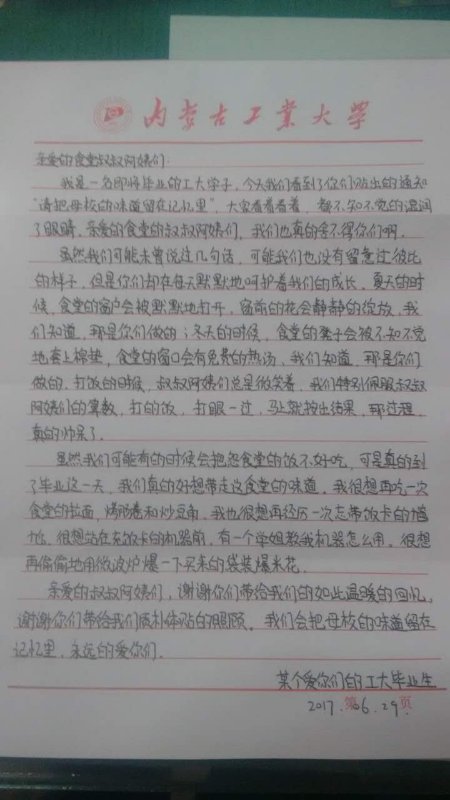 内蒙古工业大学
亲爱的食堂叔叔阿姨们:
我是一名即将毕业的工大学子,今天我们看到了你们贴出的通知
“请把母校的味道留在记忆里”,大家看着看着,都不知不觉的湿润
了眼睛,亲爱的食堂的叔叔阿姨们,我们也真的舍不得你们啊。
虽然我们可能未曾说过几句话,可能我们也没有留意过彼此
的样子,但是你们却在每天默默地呵护着我们的成长。夏天的时
候,食堂的窗户会被默默地打开,窗前的花会静静的绽放,我
们知道,那是你们做的;冬天的时候,食堂的凳子会被不知不觉
地套上棉垫,食堂的窗口会有免费的热汤,我们知道,那是你们
做的。打饭的时候,叔叔阿姨们总是微笑着,我们特别佩服叔叔
阿姨们的算数,打的饭,打眼一过,马上就按出结果,那过程,
真的帅呆了。
虽然我们可能有的时候会抱怨食堂的饭不好吃,可是真的到
了毕业这一天,我们真的好想带走这食堂的味道。我很想再吃一次
食堂的拉面,烤肠卷和炒豆角。我也很想再经历一次忘带饭卡的尴
尬。很想站在充饭卡的机器前,有一个学姐教我机器怎么用。很想
再偷偷地用微波炉爆一下买来的袋装爆米花。
亲爱的叔叔阿姨们,谢谢你们带给我们的如此温暖的回忆,
谢谢你们带给我们质朴体贴的照顾。我们会把母校的味道留在
记忆里,永远的爱你们。
某个爱你们的工大毕业生
2017.第6.29页